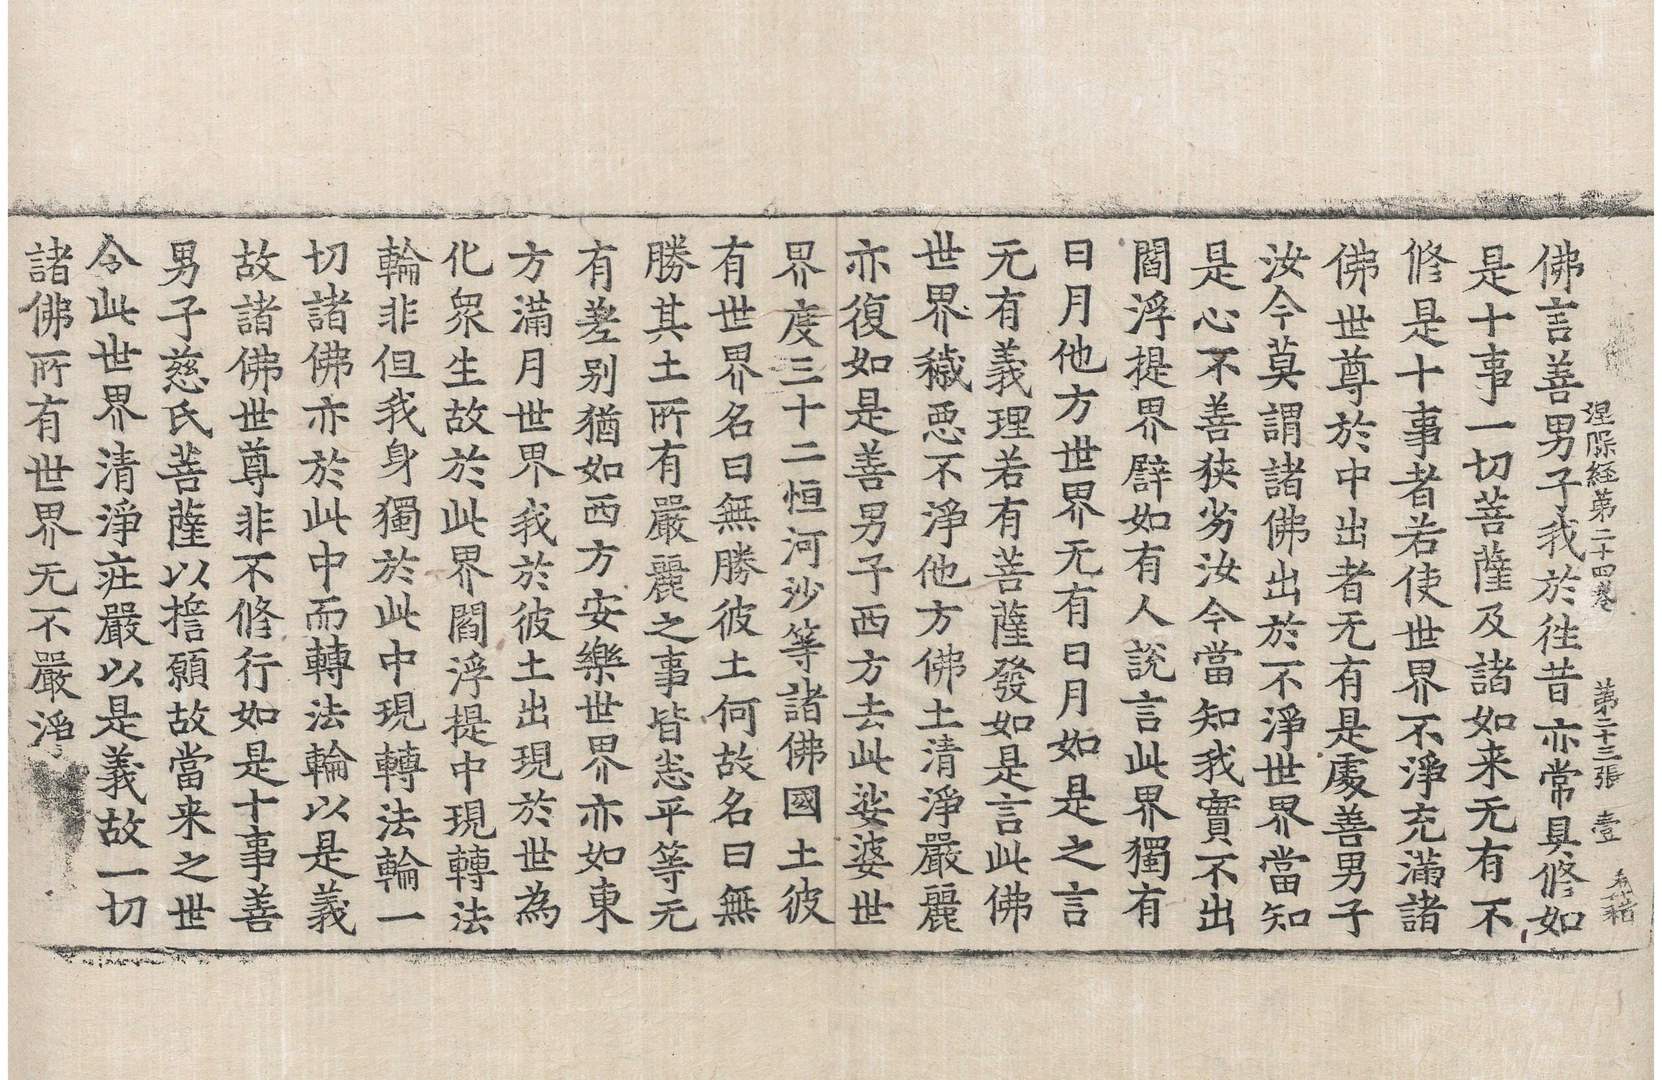 涅槃経第二十四卷 第二十三張 壹
佛言善男子我於往昔亦常具修如
是十事一切菩薩及諸如来无有不
修是十事者若使世界不淨充滿諸
佛世尊於中出者无有是處善男子
汝今莫謂諸佛出於不淨世界當知
是心不善狹劣汝今當知我實不出
閻浮提界辟如有人說言此界獨有
日月他方世界无有日月如是之言
无有義理若有菩薩發如是言此佛
世界穢惡不淨他方佛土清淨嚴麗
亦復如是善男子西方去此娑婆世
界度三十二恒河沙等諸佛國土彼
有世界名曰無勝彼土何故名曰無
勝其土所有嚴麗之事皆悉平等无
有差别猶如西方安樂世界亦如東
方滿月世界我於彼土出現於世為
化衆生故於此界閻浮提中現轉法
輪非但我身獨於此中現轉法輪一
切諸佛亦於此中而轉法輪以是義
故諸佛世尊非不修行如是十事善
男子慈氏菩薩以誓願故當来之世
令此世界清淨莊嚴以是義故一切
諸佛所有世界无不嚴淨